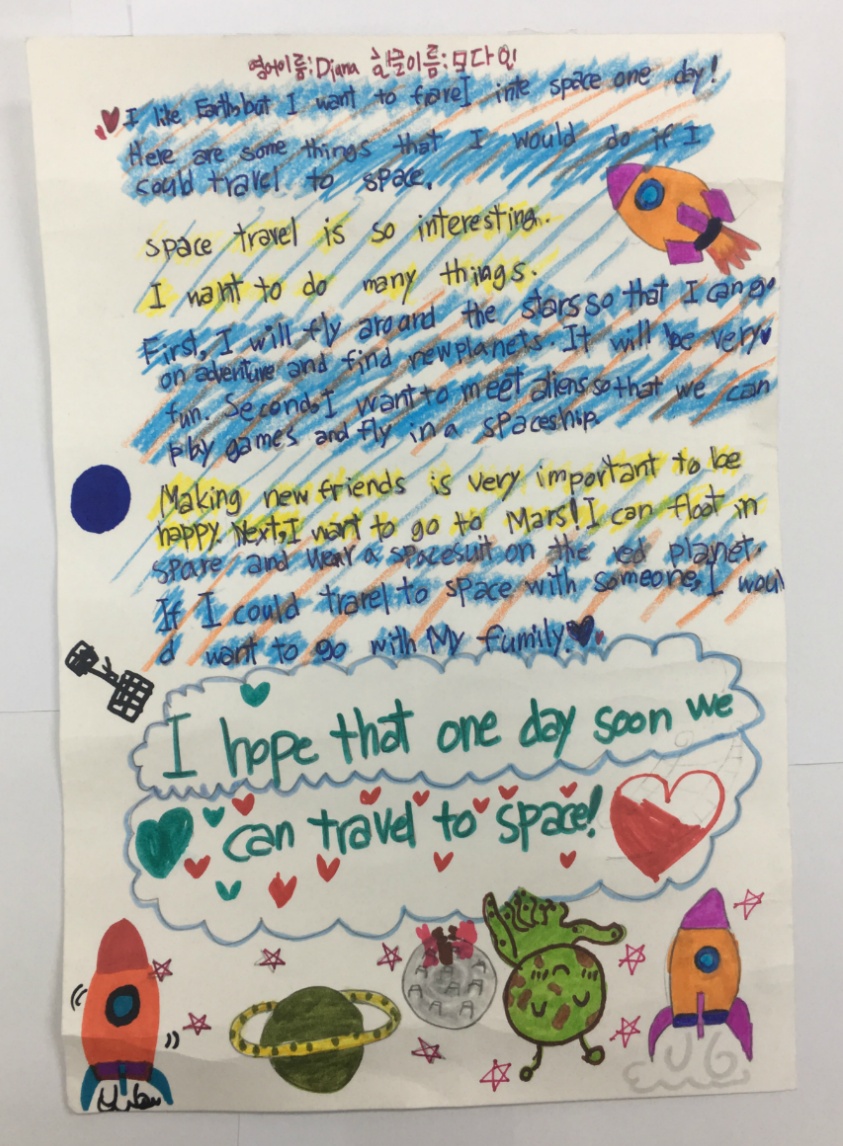 영어이름: Diana 한글이름: 목다인
I like Earth, but I want to travel inte space one day!
Here are some things that I would do if I
could travel to space.
space travel is so interesting.
I want to do many things.
First, I will fly around the stars so that I can go
on adventure and find new planets. It will be very
fun. Second, I want to meet aliens so that we can
play games and fly in a spaceship.
Making new friends is very important to be
happy. Next, I want to go to Mars! I can float in
spare and wear a spacesuit on the red planet.
If I could travel to space with someone, I woul
d want to go with My fumily!
I hope that one day soon we
can travel to space!